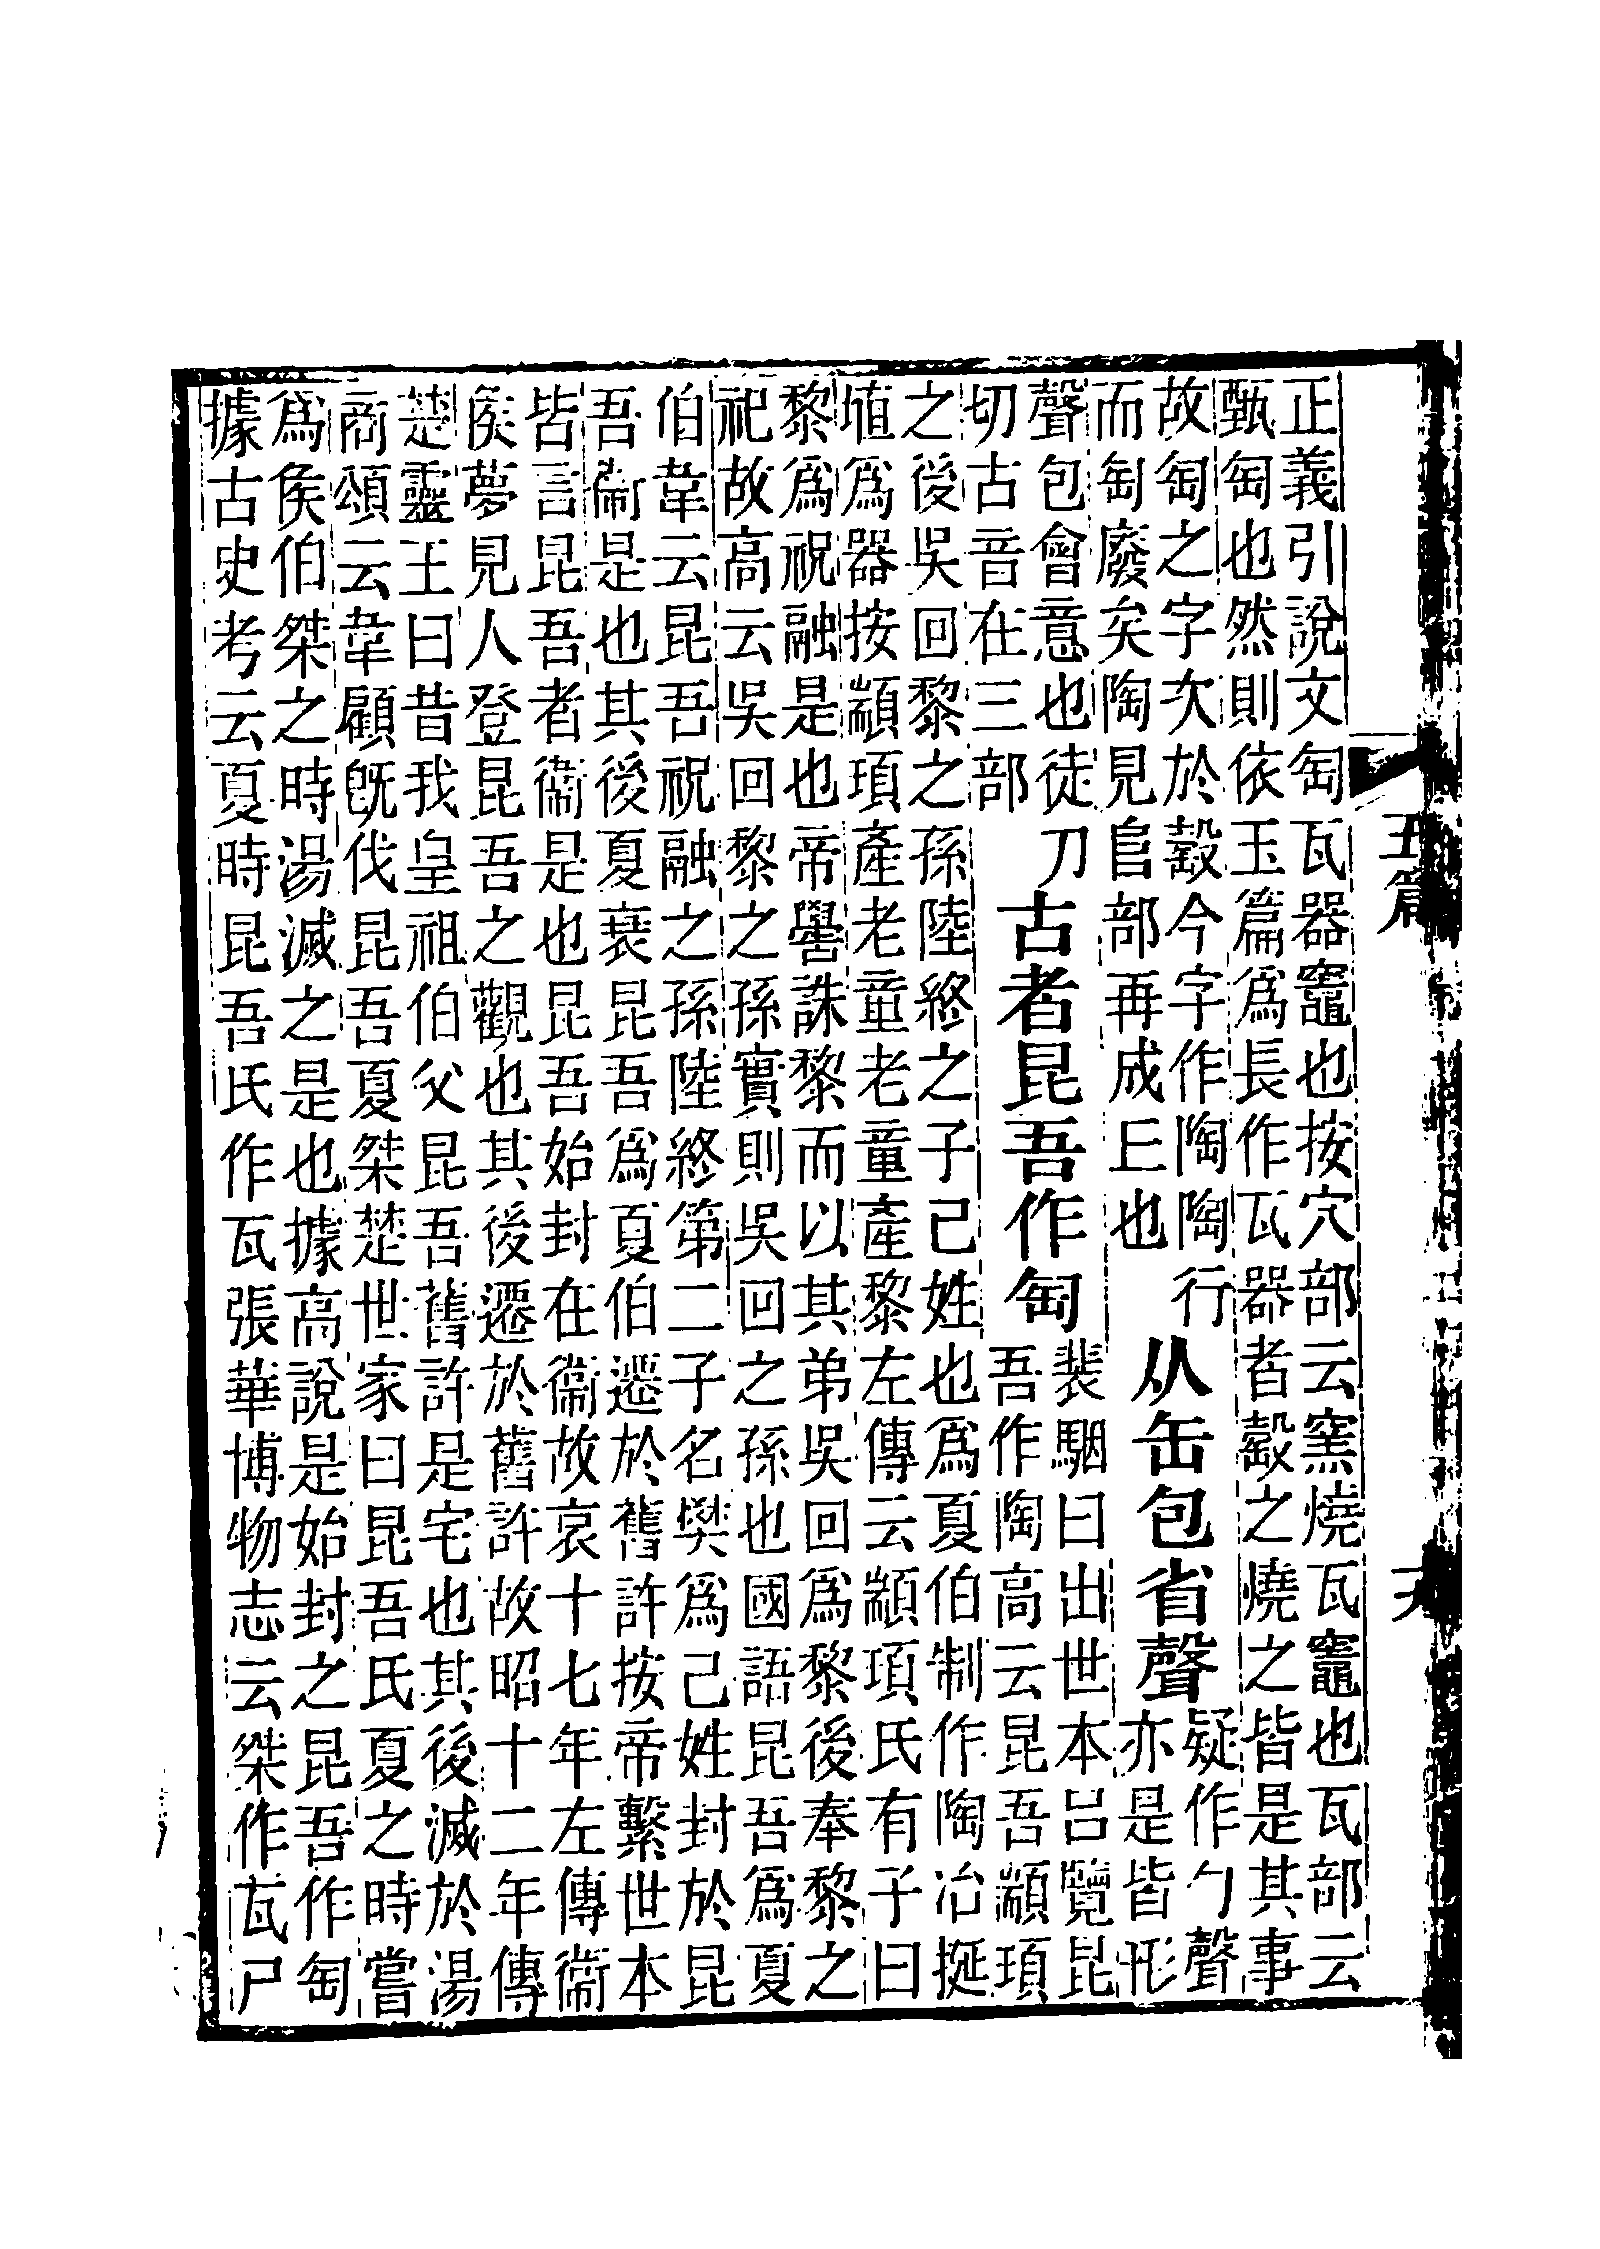 正義引說文匋瓦器竈也按穴部云窯燒瓦竈也瓦部云
甄匋也然則依玉篇爲長作瓦器者㲉之燒之皆是其事
故匋之字次於㲉今字作陶陶行
而匋廢矣陶見𨸏部再成𠀉也
从缶包省聲
疑作勹聲
亦是皆形
聲包會意也徒刀
切古音在三部
古者昆吾作匋
裴駰曰出世本呂覽昆
吾作陶高云昆吾顓頊
之後吳回黎之孫陸終之子己姓也爲夏伯制作陶冶挻
埴爲器按顓頊產老童老童產黎左傳云顓頊氏有子曰
黎爲祝融是也帝嚳誅黎而以其弟吳回爲黎後奉黎之
祀故高云吳回黎之孫實則吳回之孫也國語昆吾爲夏
伯韋云昆吾祝融之孫陸終第二子名樊爲己姓封於昆
吾衞是也其後夏衰昆吾爲夏伯遷於舊許按帝繫世本
皆言昆吾者衞是也昆吾始封在衞故哀十七年左傳衞
侯夢見人登昆吾之觀也其後遷於舊許故昭十二年傳
楚靈王曰昔我皇祖伯父昆吾舊許是宅也其後滅於湯
商頌云韋顧旣伐昆吾夏桀楚世家曰昆吾氏夏之時嘗
爲侯伯桀之時湯滅之是也據高說是始封之昆吾作匋
據古史考云夏時昆吾氏作瓦張華博物志云桀作瓦尸
五篇